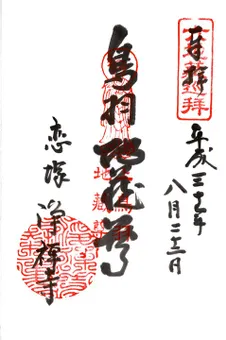 奉拝
平成三十年
八月二十二日
鳥羽地蔵尊
恋塚 淨禅寺